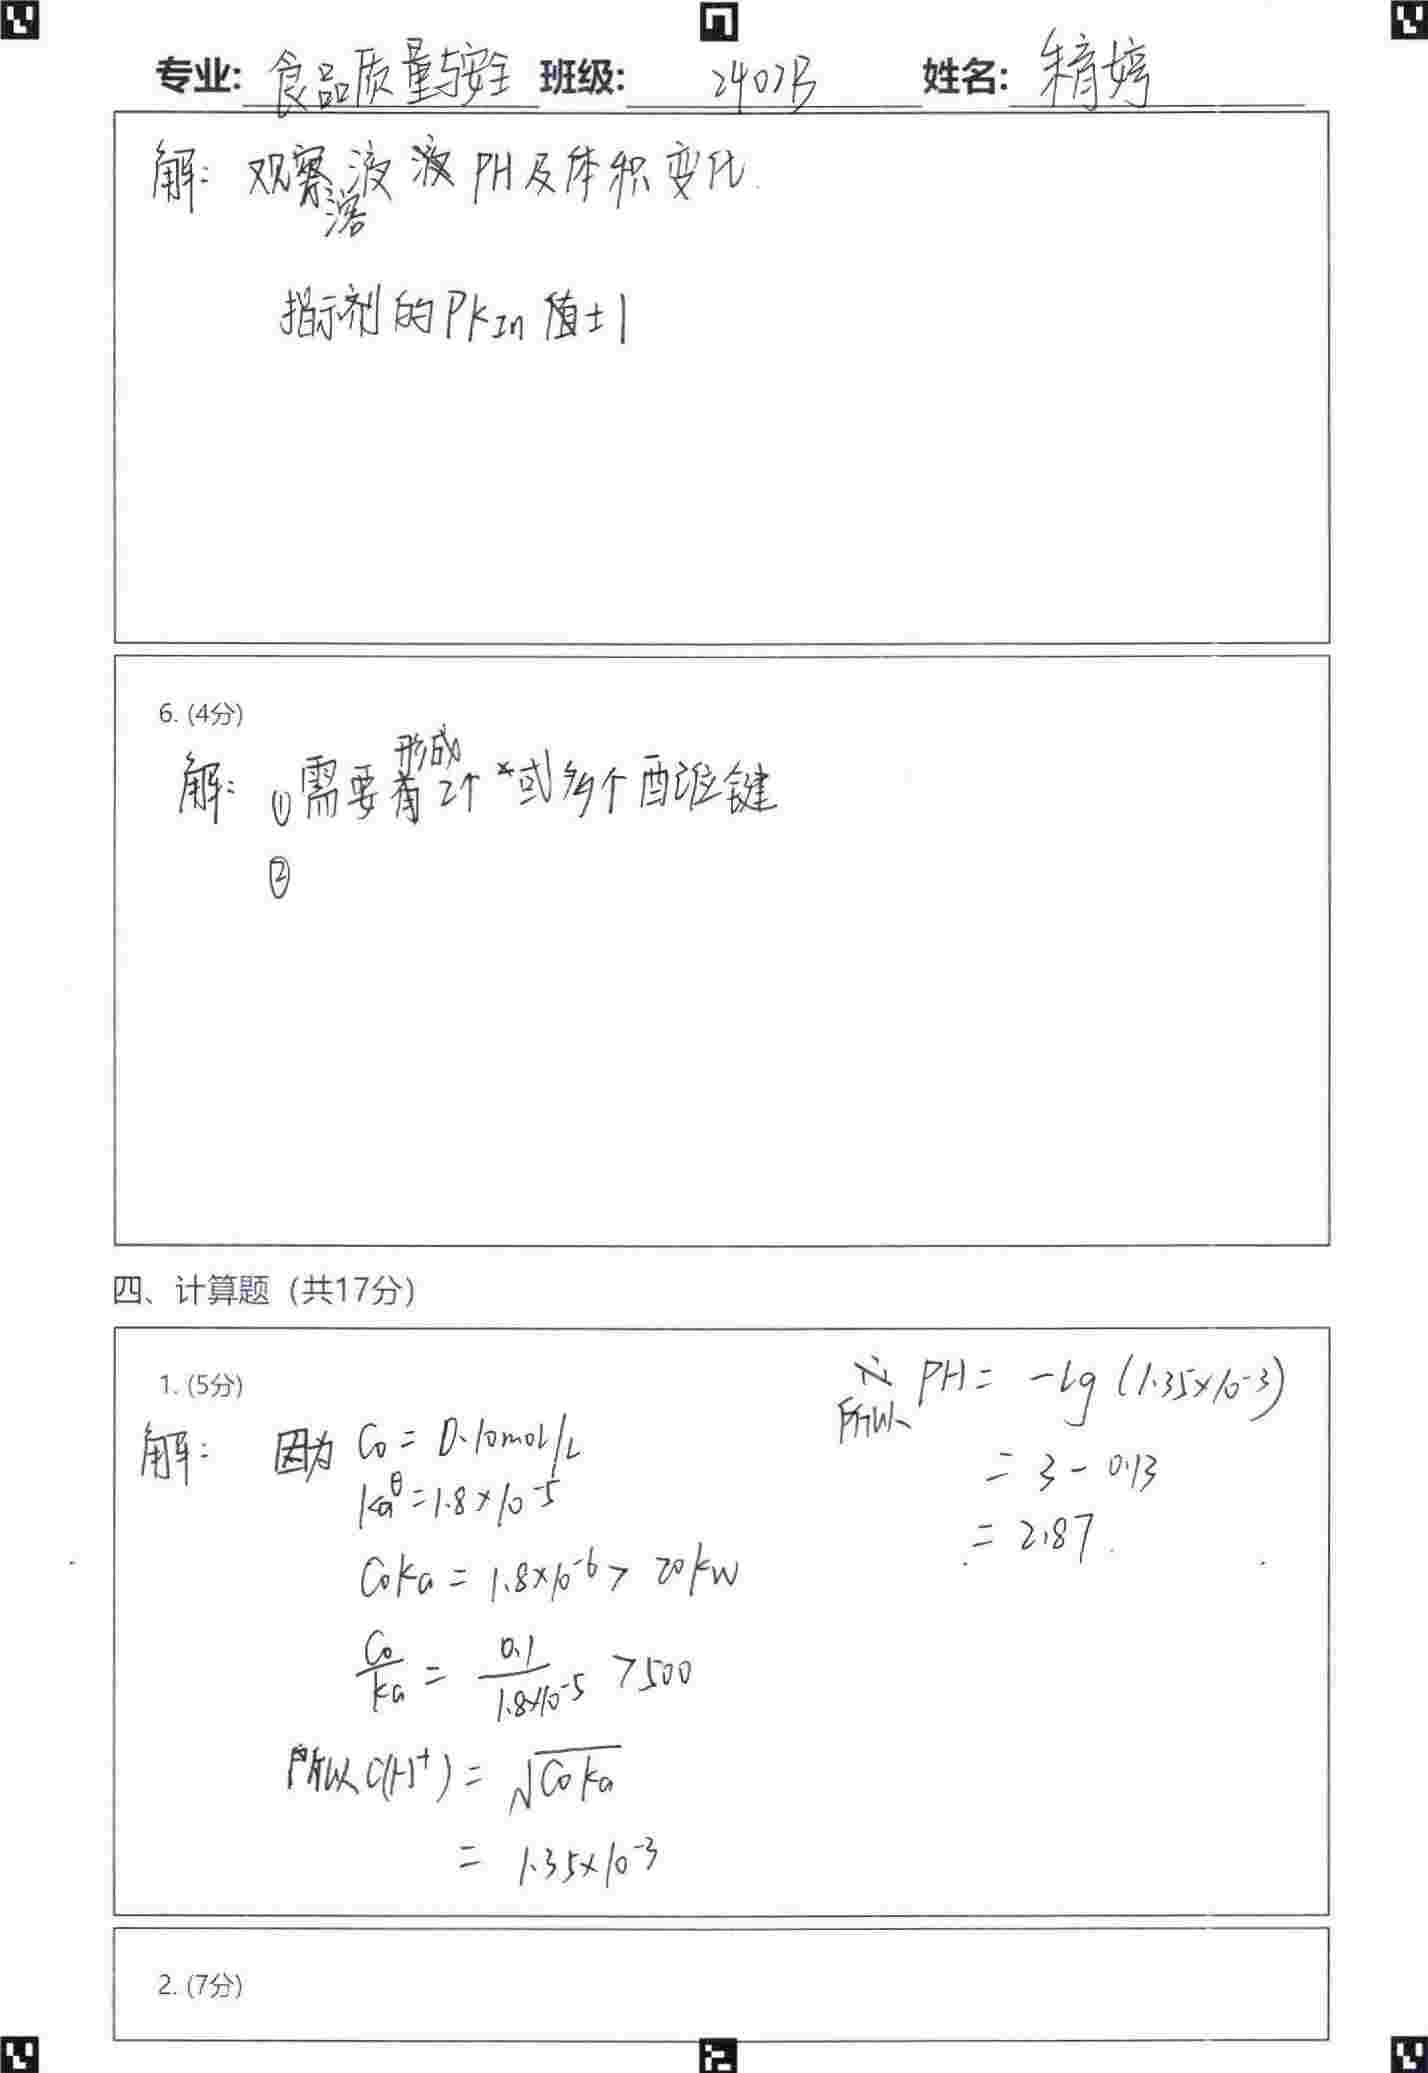 专业: 食品质量与安全 班级: 2402B 姓名: 朱育婷
解: 观察溶液 PH及体积变化.
指示剂的PKIn 值±1
6. (4分)
解: ①需要形成2个或多个配位键
②
四、计算题（共17分）
1. (5分)
解: 因为 C₀ = 0.10mol/L
Ka^θ = 1.8×10⁻⁵
C₀Ka = 1.8×10⁻⁶ > 20Kw
C₀/Ka = 0.1/1.8×10⁻⁵ > 500
所以 C(H⁺) = √C₀Ka
= 1.35×10⁻³
所以 PH = -lg (1.35×10⁻³)
= 3 - 0.13
= 2.87.
2. (7分)